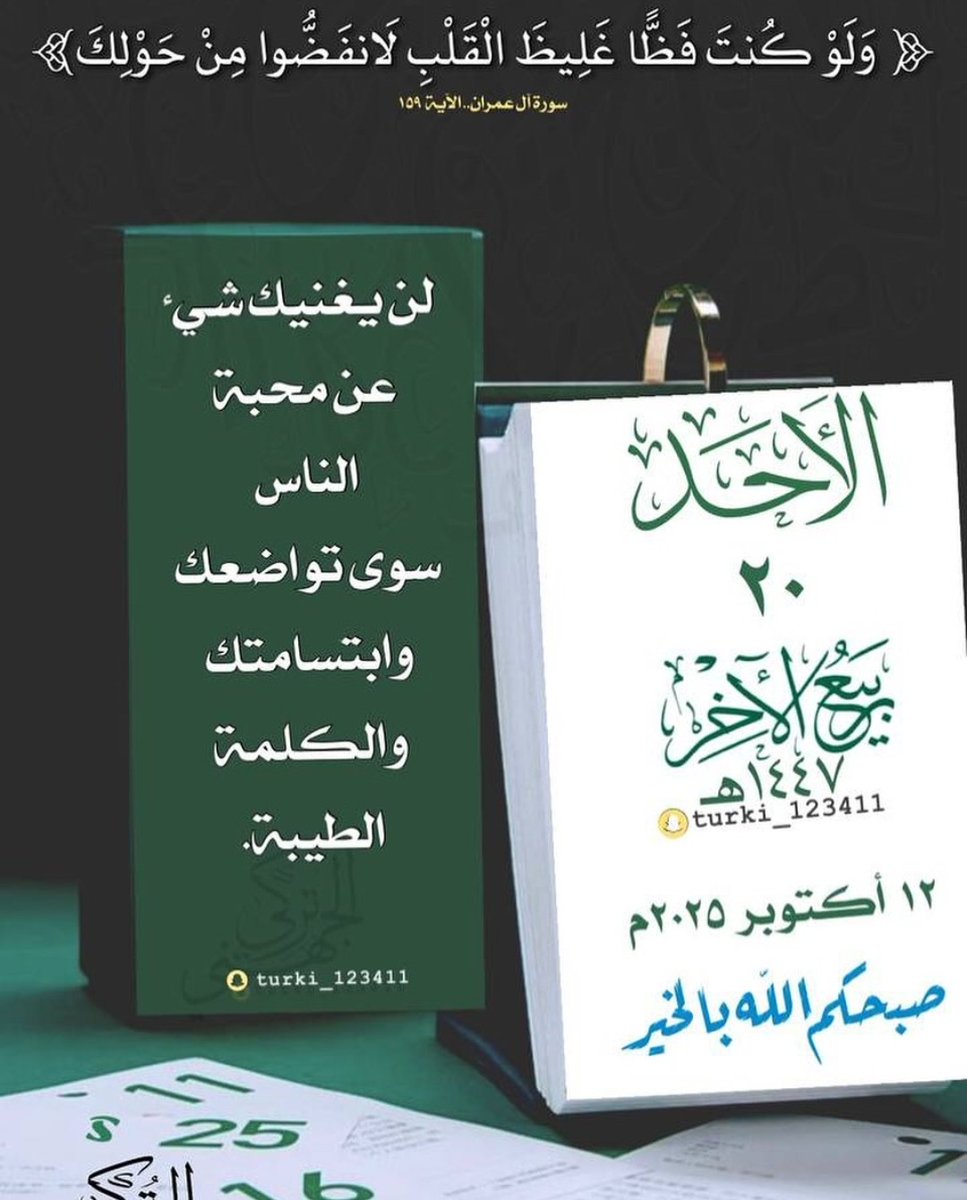 ﴿ وَلَوْ كُنتَ فَظًّا غَلِيظَ الْقَلْبِ لَانفَضُّوا مِنْ حَوْلِكَ ﴾
سورة آل عمران..الآية ١٥٩
لن يغنيك شيء
عن محبة
الناس
سوى تواضعك
وابتسامتك
والكلمة
الطيبة.
turki_123411
الأَحَد
٢٠
رَبيعُ الآخِر
١٤٤٧هـ
turki_123411
١٢ أكتوبر ٢٠٢٥م
صبحكم الله بالخير
11
25
16
1